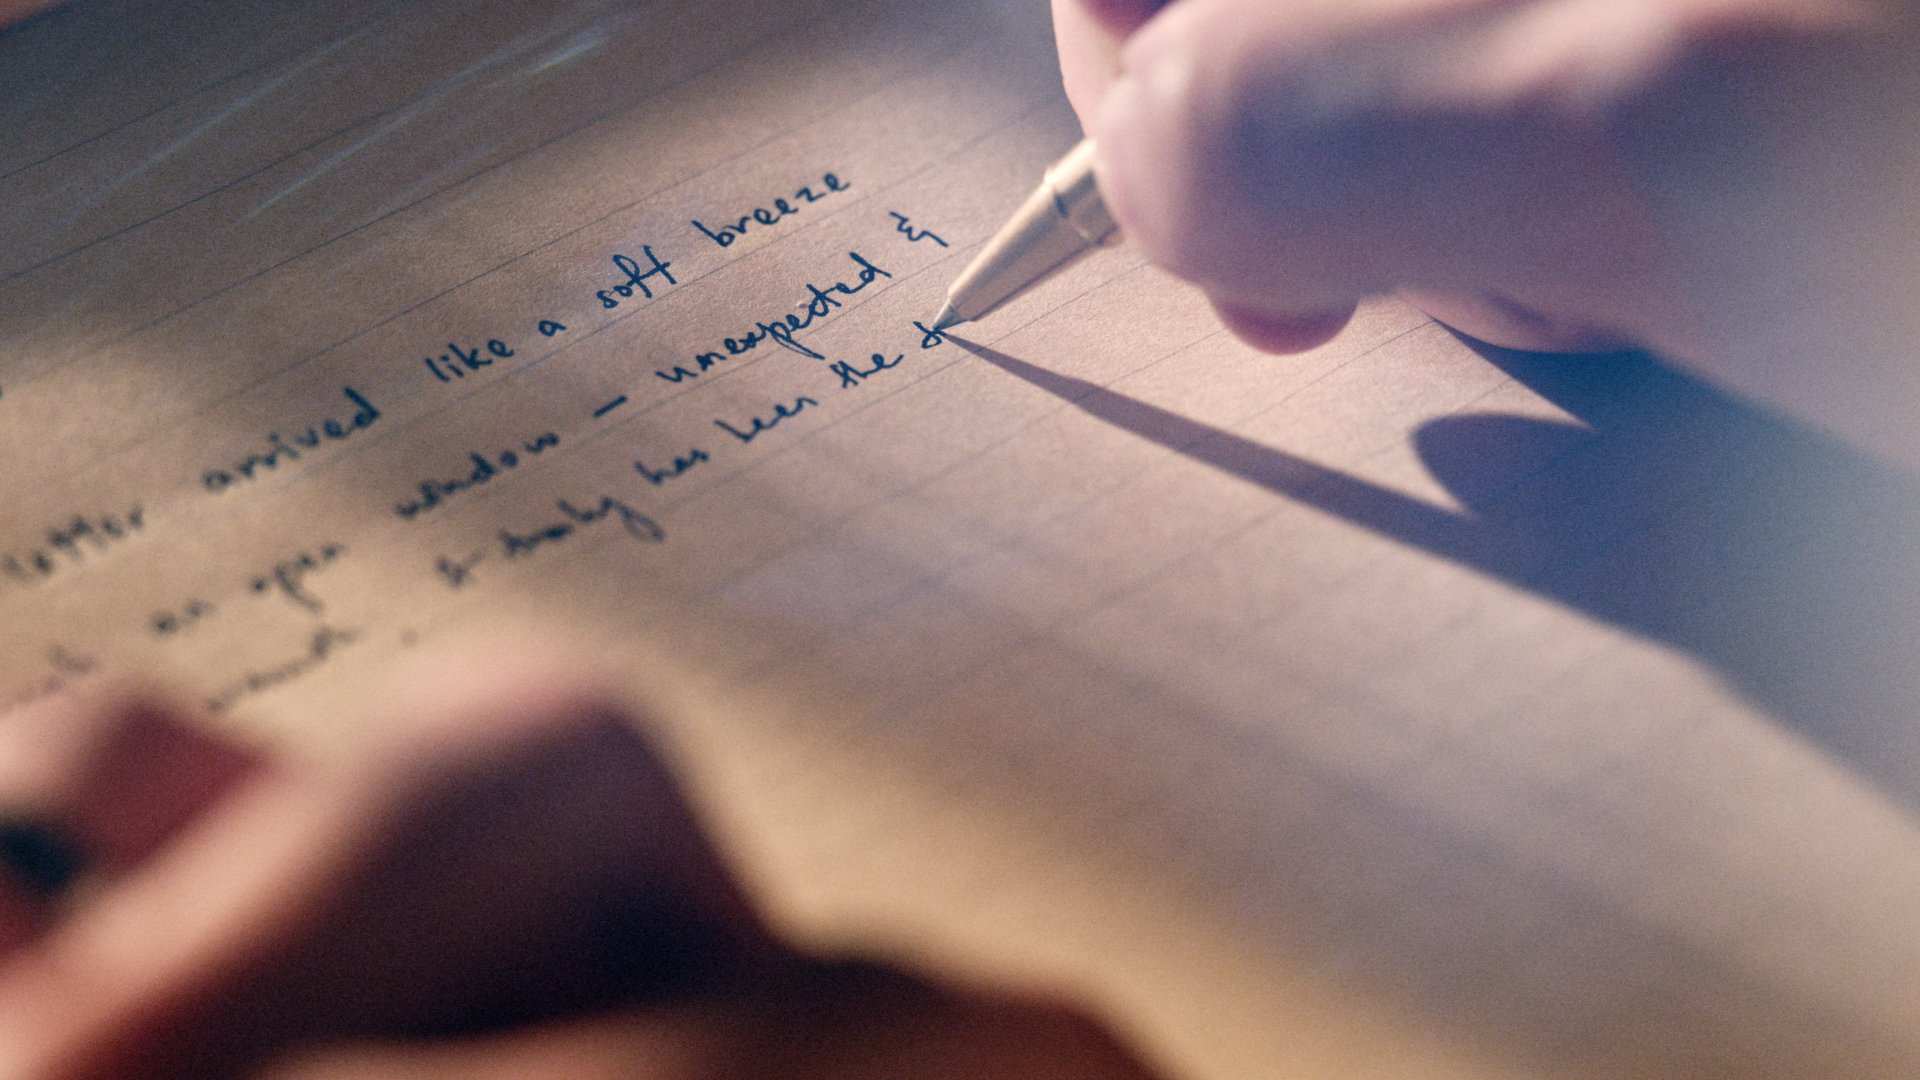 letter arrived like a soft breeze
an open window — unexpected &
has been the